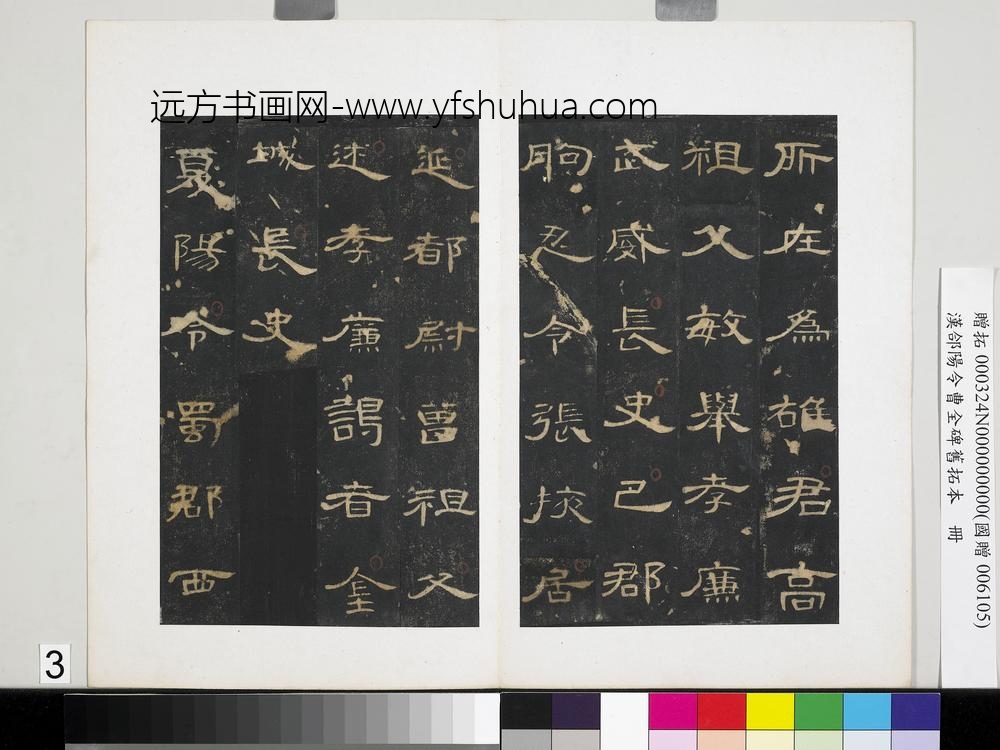 远方书画网-www.yfshuhua.com
所在為雄君高
祖父敏舉孝廉
武威長史巴郡
朐忍令張掖居
延都尉曾祖父
述孝廉謁者金
城長史
夏陽令蜀郡西
贈拓 000324N000000000(國贈 006105)
漢郃陽令曹全碑舊拓本 冊
3